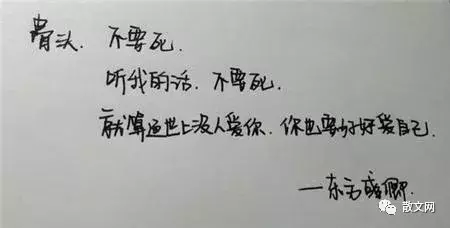 骨头. 不要死.
听我的话. 不要死.
就算这世上没人爱你. 你也要好好爱自己.
——东方盛卿.
散文网